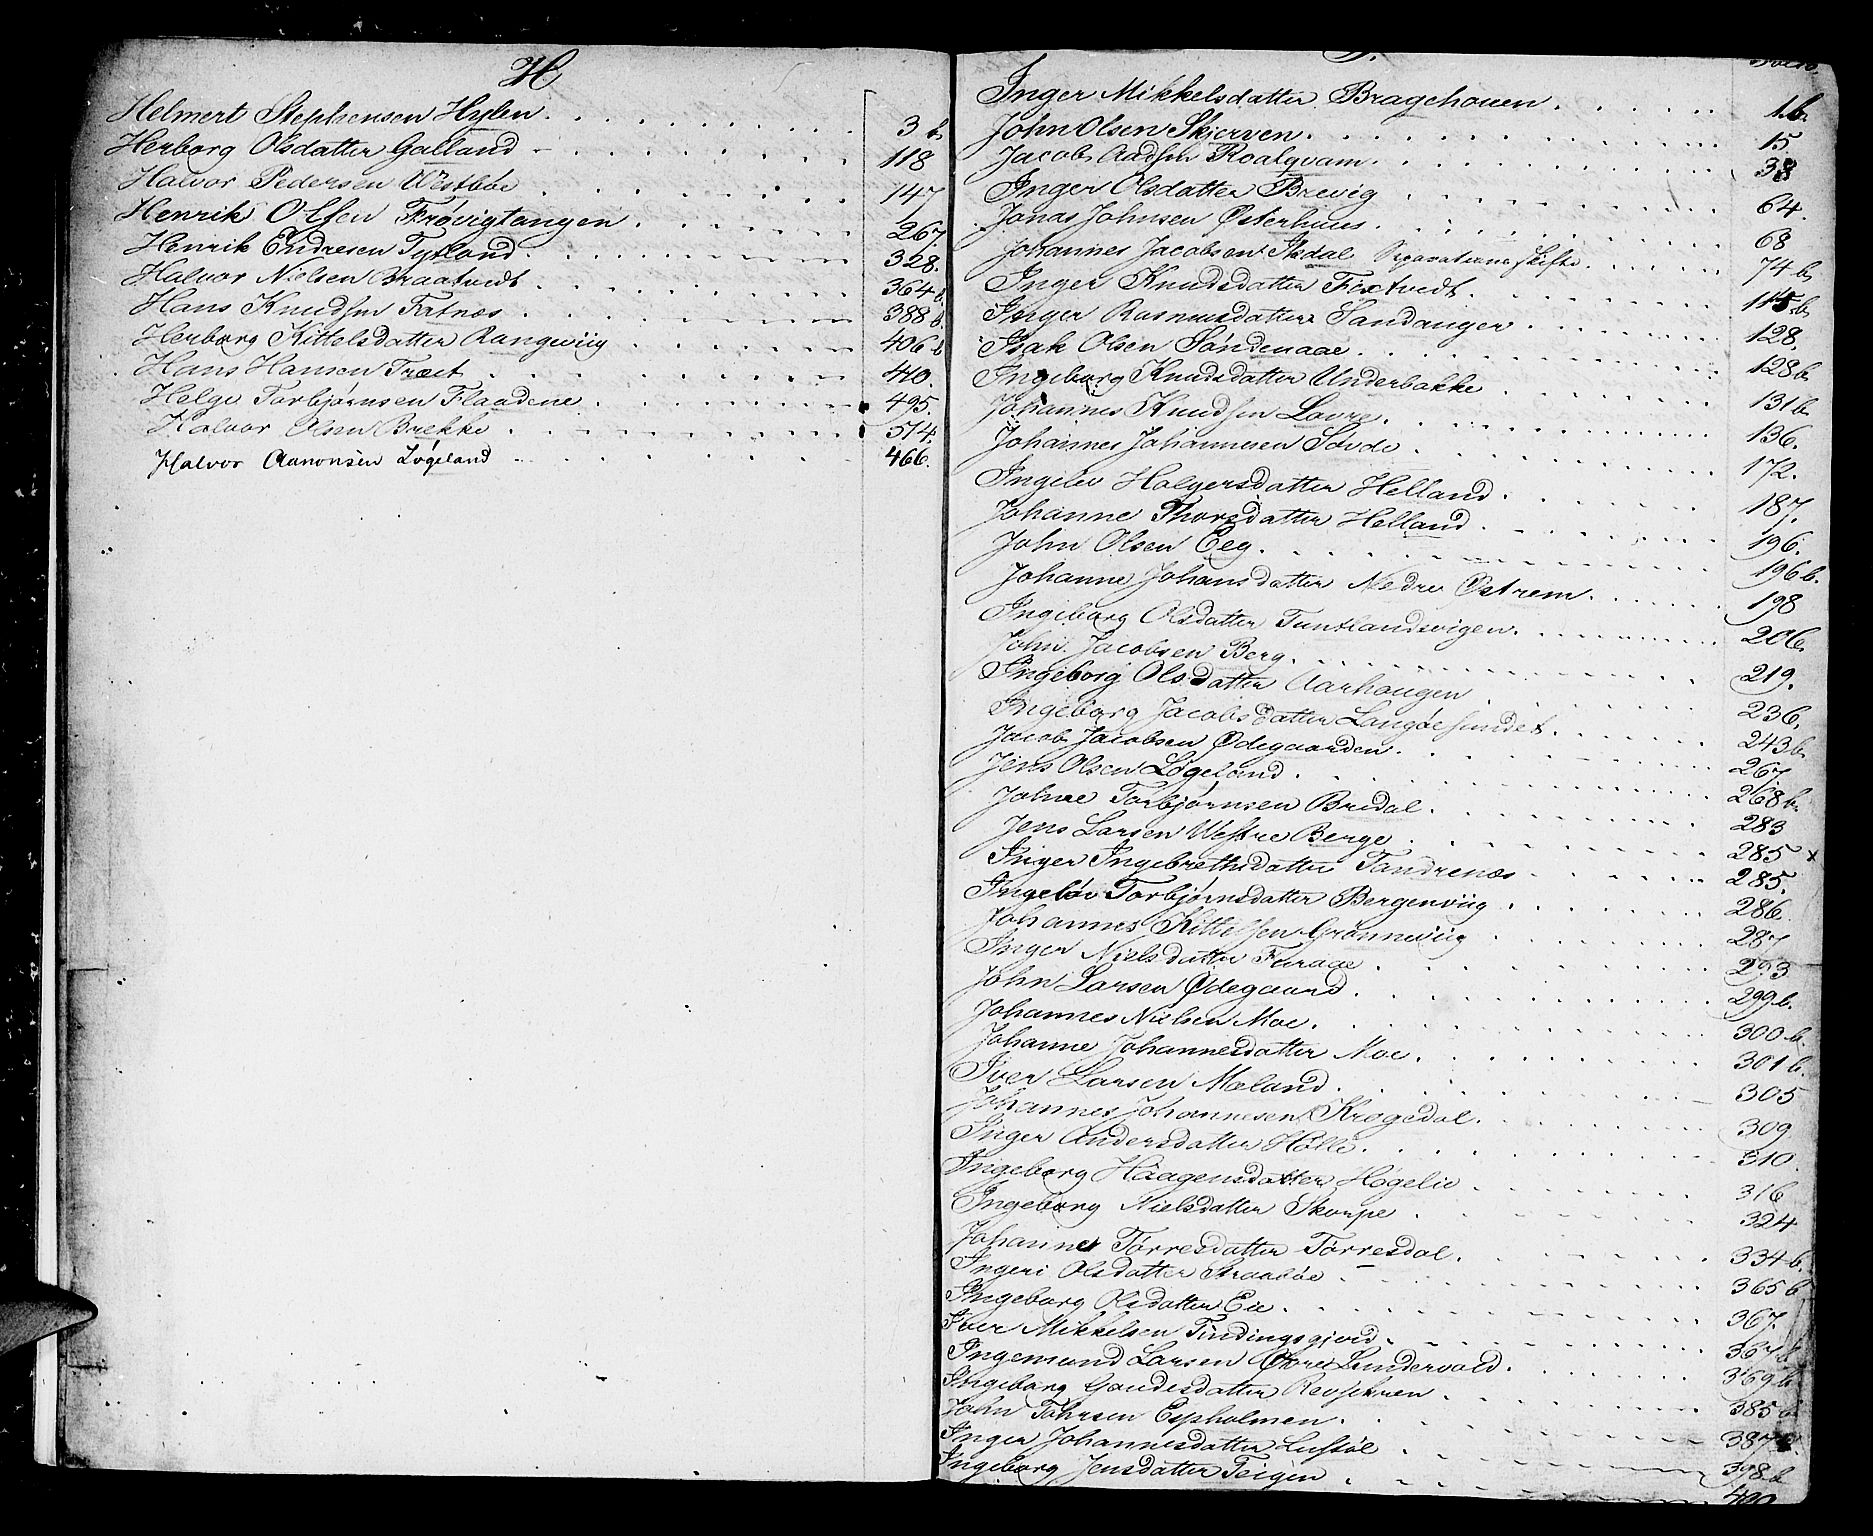 H
Helmert Stephensen Hylen. 3 b
Herborg Olsdatter Galland 118
Halvor Pedersen Westbøe 147
Henrik Olsen Frøvigtangen 267.
Henrik Endresen Tytland 328.
Halvor Nielsen Braatvedt 364 b.
Hans Knudsen Fatnæs 388 b.
Herborg Kittelsdatter Rangeviig 406 b
Hans Hansen Træet 410.
Helge Torbjørnsen Flaadene 495.
Halvor Olsen Brekke 514.
Halvor Aanonsen Løgeland 466.
J. Folio.
Inger Mikkelsdatter Bragehouen. 1 b.
John Olsen Skjerven. 15
Jacob Aadsen Roalqvam. 38
Inger Olsdatter Brevig 64.
Jonas Johnsen Østerhuus. 68
Johannes Jacobsen Isdal Separations skifte. 74 b
Inger Knudsdatter Foxtvedt. 115 b
Inger Rasmusdatter Sandanger 128.
Isak Olsen Søndenaae. 128 b
Ingeborg Knudsdatter Underbakke 131 b
Johannes Knudsen Lovre. 136.
Johannes Johannesen Sovde 172.
Ingelev Holgersdatter Helland. 187.
Johanne Thorsdatter Helland. 196.
John Olsen Eeg. 196 b.
Johanne Johansdatter Nedre Østrem. 198
Ingeborg Olsdatter Tuntlandsvigen. 206
John Jacobsen Berg. 219.
Ingeborg Olsdatter Aarhougen 236.
Ingeborg Jacobsdatter Langøesundet. 243 b
Jacob Jacobsen Ødegaarden. 267
Jens Olsen Løgeland. 268 b.
Johne Torbjørnsen Bredal. 283
Jens Larsen Westre Berge. 285 x
Inger Ingebrethsdatter Tandrenæs 285.
Ingeløv Torbjørnsdatter Bergenviig 286.
Johannes Kittelsen Grønneviig 287
Inger Nielsdatter Furaae. 293
John Larsen Ødegaard. 299 b.
Johannes Nielsen Moe. 300 b.
Johanne Johannesdatter Moe. 301 b.
Iver Larsen Mæland. 305
Johannes Johannesen Krogedal. 309
Inger Andersdatter Hølle. 310.
Ingeborg Haagensdatter Høgelie 316
Ingeborg Nielsdatter Skorpe 324
Johanne Tørresdatter Tørresdal. 334 b.
Ingeri Olsdatter Straabøe 365 b
Ingeborg Olsdatter Eie. 367.
Iver Mikkelsen Tindingsgjerd. 367 b
Ingemund Larsen Øvre Lundervold. 369 b.
Ingeborg Gaudesdatter 385 b
John Johnsen Espholmen. 387
Inger Johannesdatter Luftøl 398 b
Ingeborg Jensdatter Teigen